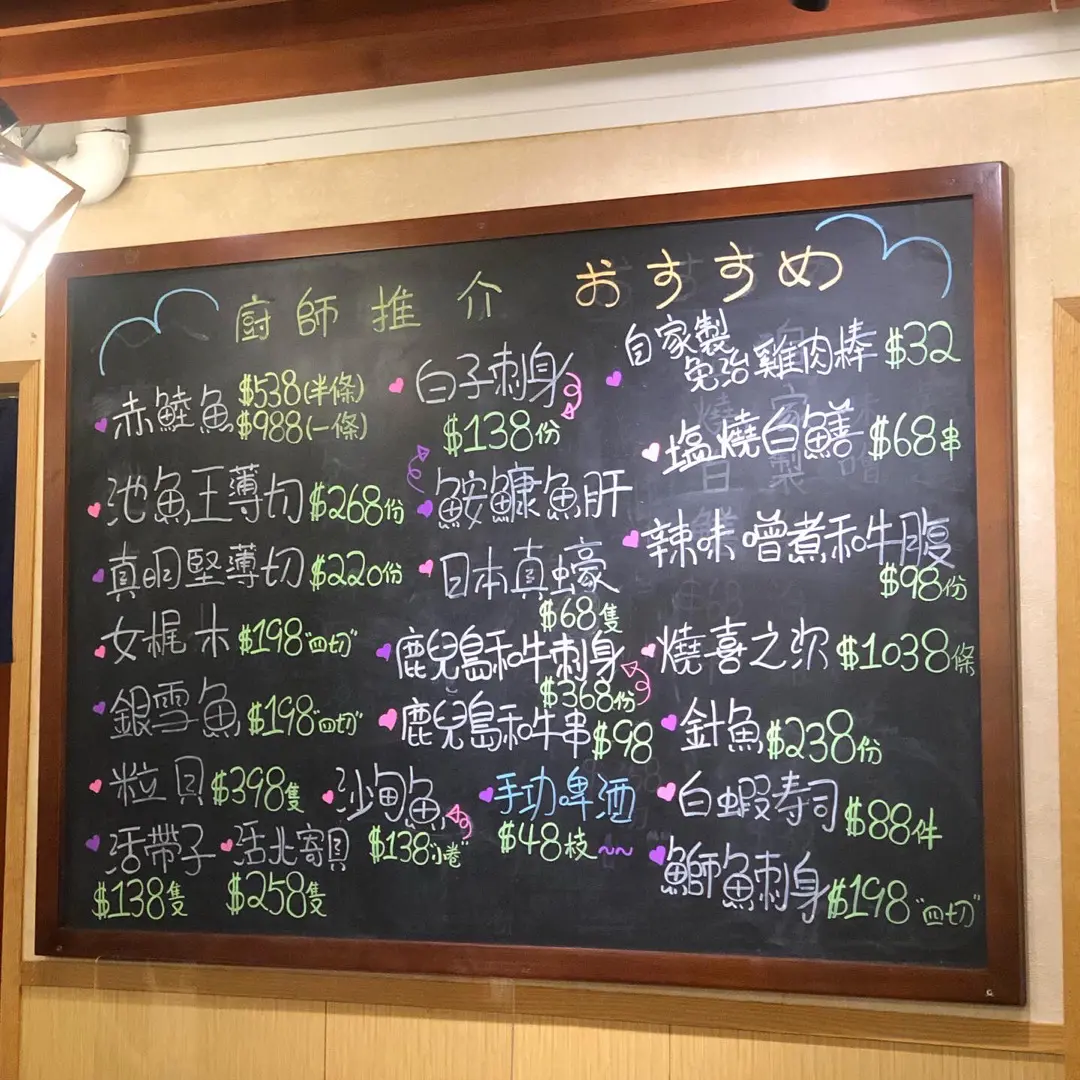 廚師推介 おすすめ
赤鯥魚 $538(半條)
$988(一條)
池魚王薄切 $268份
真田堅薄切 $220份
女梶木 $198"四切"
銀雪魚 $198"四切"
粒貝 $398隻
活帶子 $138隻
活北寄貝 $258隻
白子刺身
$138份
鮟鱇魚肝
日本真蠔
$68隻
鹿兒島和牛刺身
$368份
鹿兒島和牛串 $98
沙甸魚
$138"小卷"
手功啤酒
$48枝
自家製
免治雞肉棒 $32
塩燒白鱔 $68串
辣味噌煮和牛腹
$98份
燒喜之次 $1038條
針魚 $238份
白蝦寿司 $88件
鰤魚刺身 $198"四切"